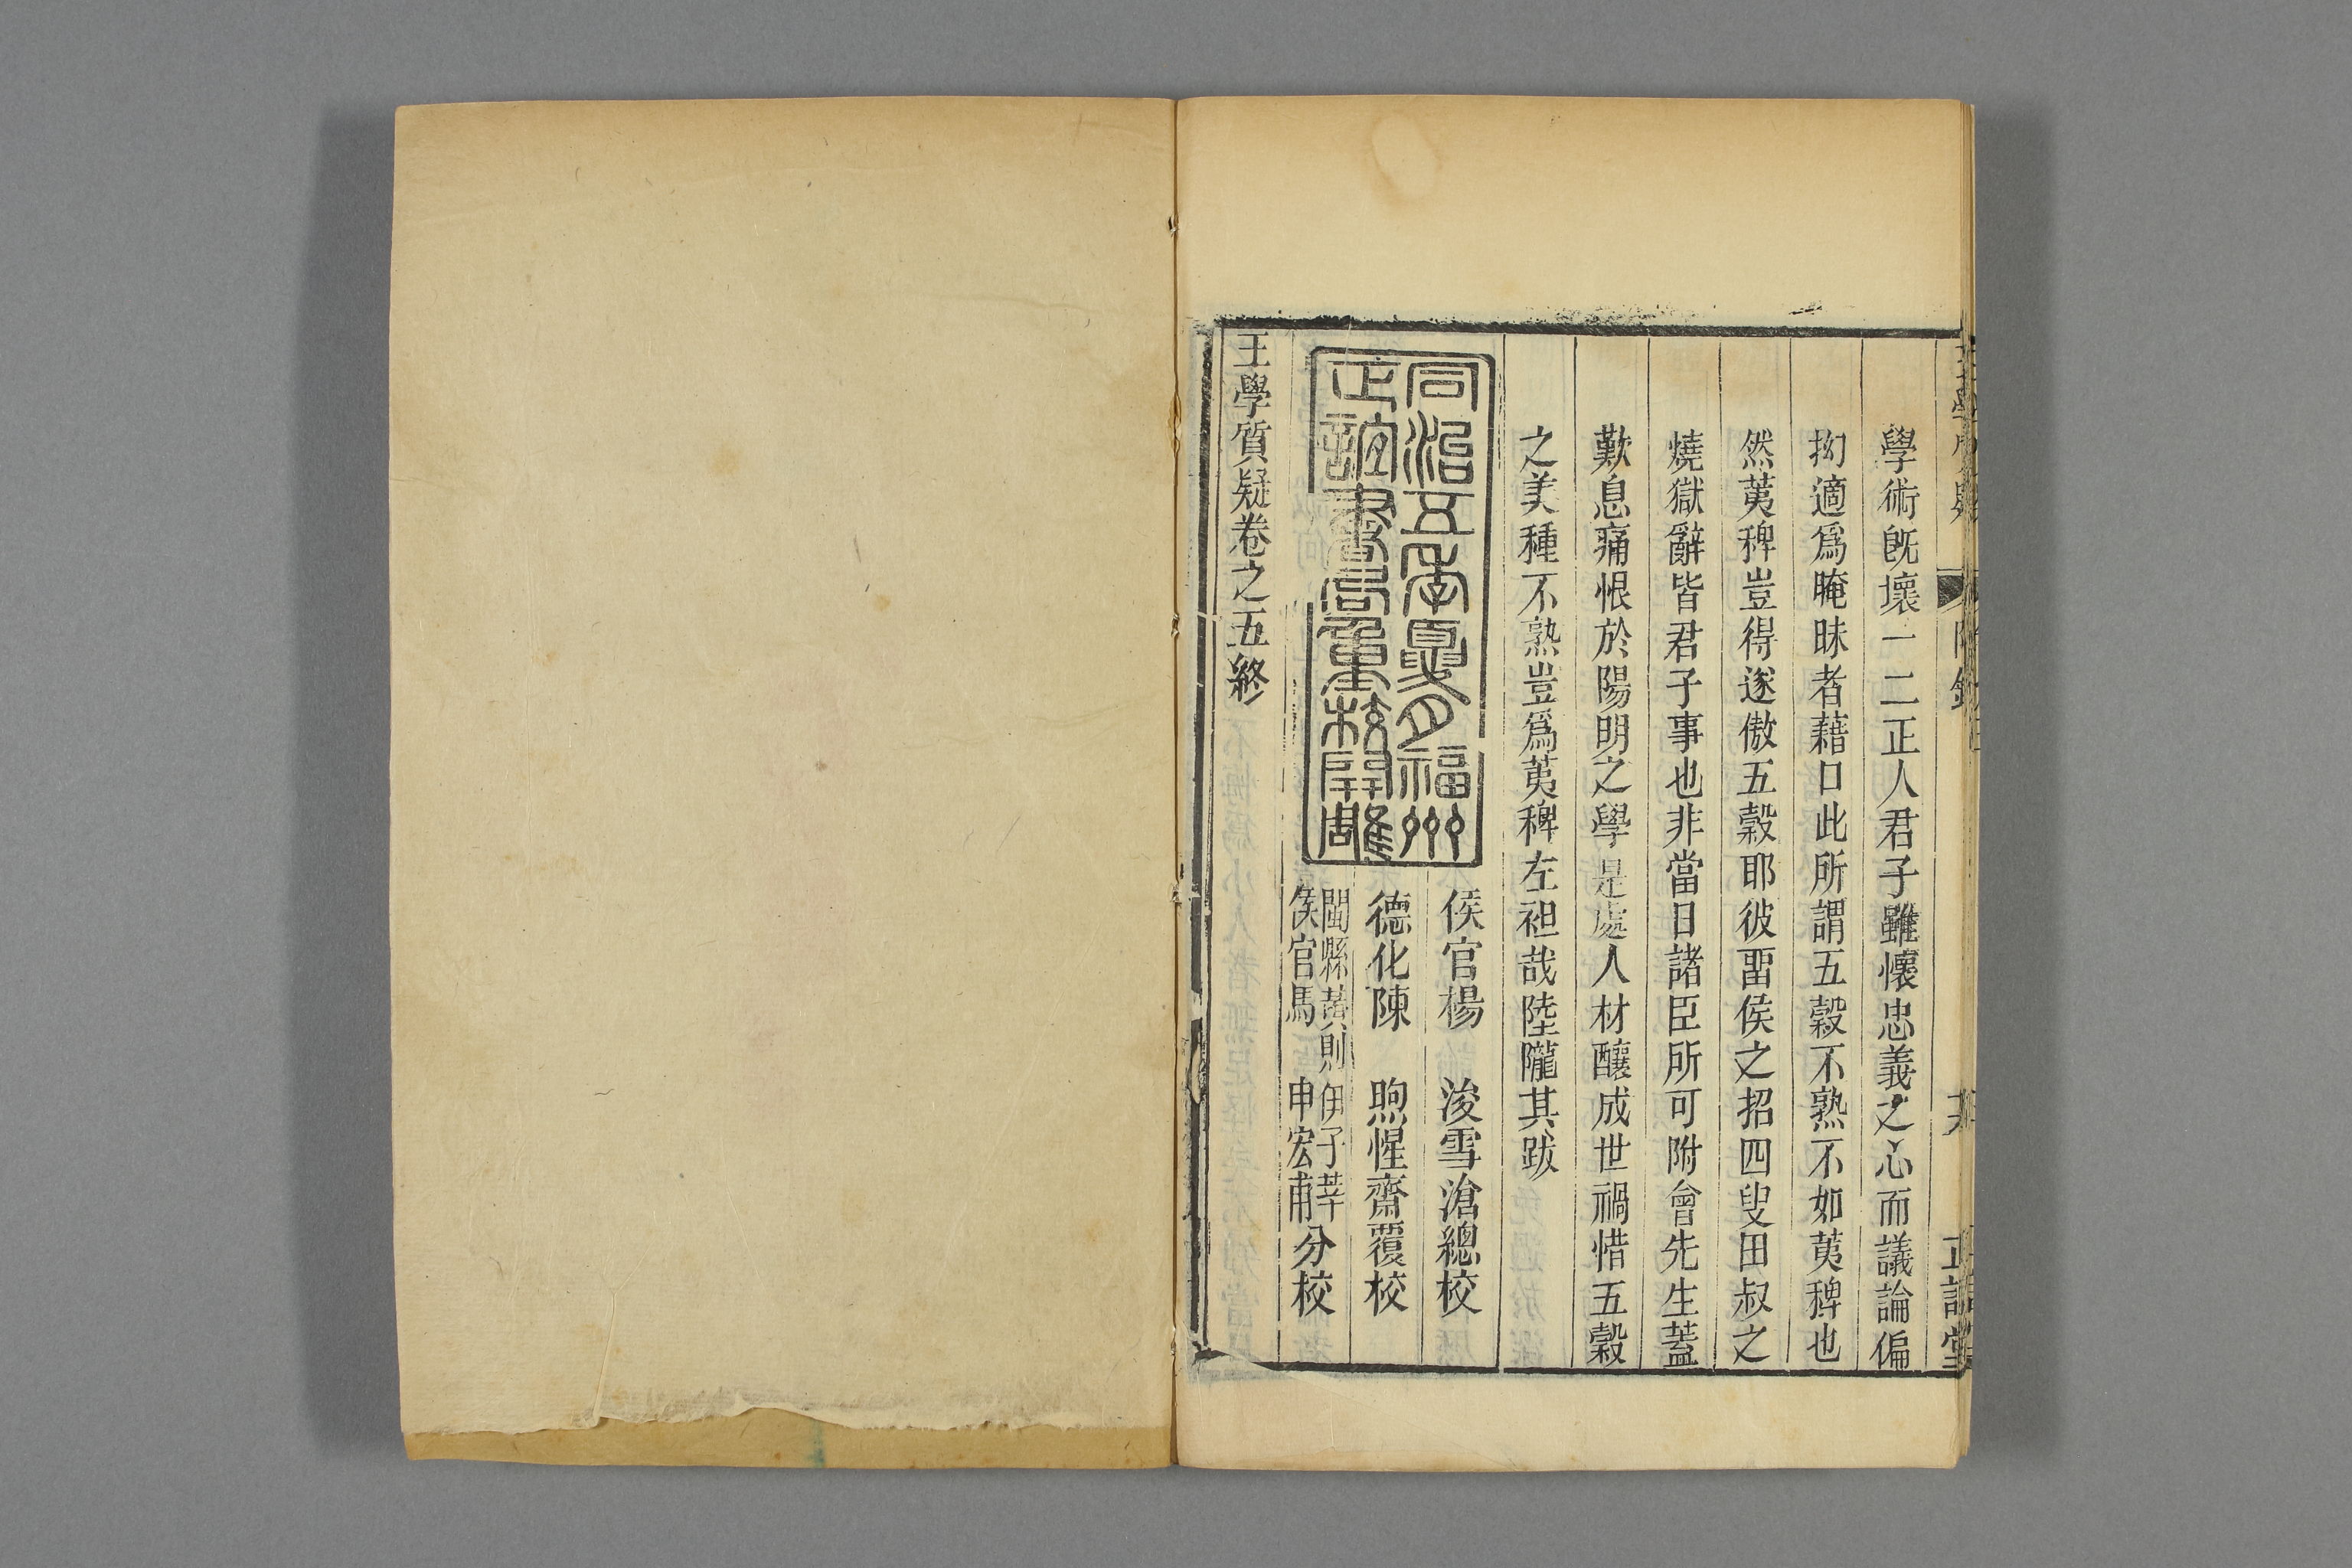 學術旣壞一二正人君子雖懷忠義之心而議論偏
拗適爲腌昧者藉口此所謂五穀不熟不如荑稗也
然荑稗豈得遂傲五穀耶彼畱侯之招四叟田叔之
燒獄辭皆君子事也非當日諸臣所可附會先生蓋
歎息痛恨於陽明之學是處人材釀成世禍惜五穀
之美種不熟豈爲荑稗左袒哉陸隴其跋
同治五年夏月福州
正誼書局重校開雕
侯官楊 浚雪滄總校
德化陳 煦惺齋覆校
閩縣黃則伊子莘
侯官馬 申宏甫分校
王學質疑卷之五終